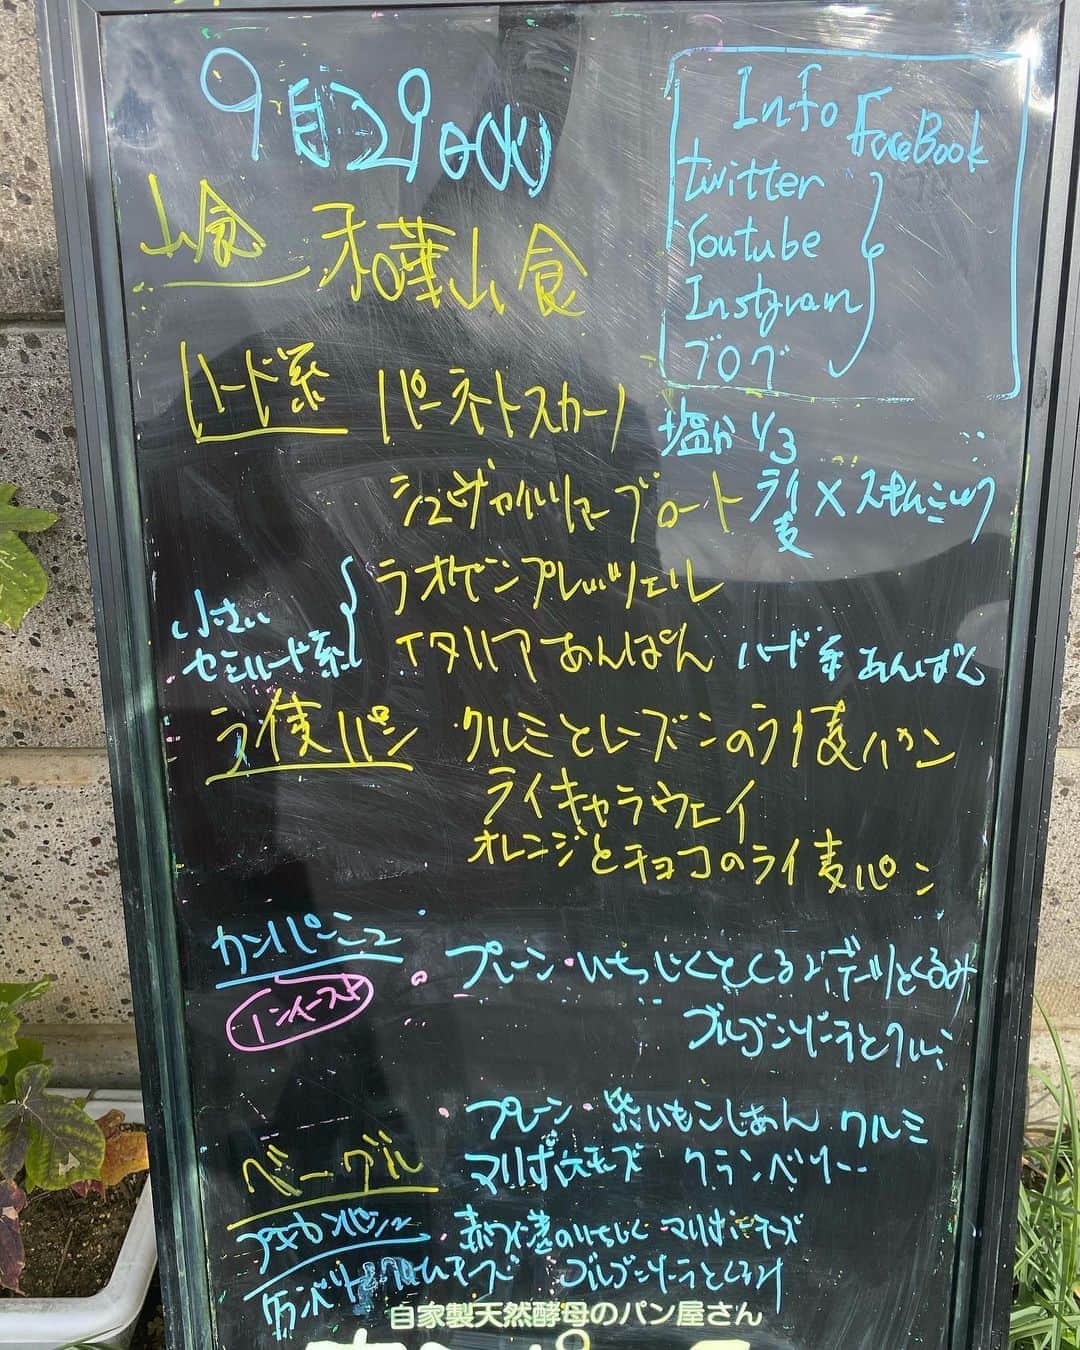 9月29日(火)
Info
FaceBook
twitter
Youtube
Instgram
ブログ
山食 山食
ハード系 パーネトスカーノ 塩が1/3
シュヴァイツァーブロート ライ麦×スキムミルク
小さい
セミハード系
ラオゲンプレッツェル
イタリアあんぱん ハード系あんぱん
ライ麦パン クルミとレーズンのライ麦パン
ライキャラウェイ
オレンジとチョコのライ麦パン
カンパーニュ プレーン・いちじくとくるみ デーツとくるみ
とクルミ
プレーン・紫いもこしあん クルミ
ベーグル クランベリー
赤ワイン漬のいちじく マリボーチーズ
とくるみ
自家製天然酵母のパン屋さん